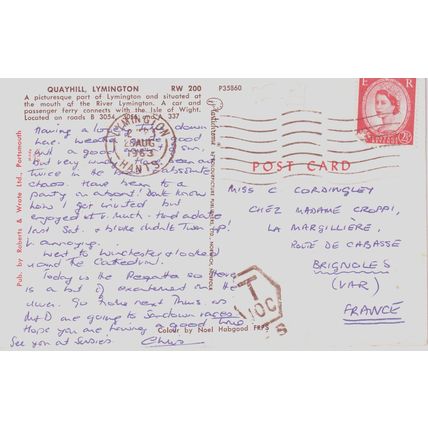 QUAYHILL, LYMINGTON RW 200
A picturesque part of Lymington and situated at
the mouth of the River Lymington. A car and
passenger ferry connects with the Isle of Wight.
Located on roads B 3054, and 337
P35860
Pub. by Roberts & Wrate Ltd., Portsmouth
LYMINGTON
28 AUG
1963
HANTS.
E R
2½
POST CARD
Having a down
here.
and a good sun.
But very
twice in the absolute
chaos. Have been to a
party on a yacht! Don't know
how I got invited but
enjoyed it v. much. Had a date
last Sat. & bloke didn't turn up!
V. annoying.
Went to Winchester & looked
round the Cathedral.
Today is the Regatta so there
is a bit of excitement on the
river. Go home next Thurs. as
M & D are going to Sandown races.
Hope you are having a good time.
See you at Susies. Chris
MISS C CORDINGLEY
CHEZ MADAME CROPPI,
LA MARGILLIÈRE,
ROUTE DE CABASSE
BRIGNOLES
(VAR)
FRANCE
T
10C
Colour by Noel Habgood FRPS